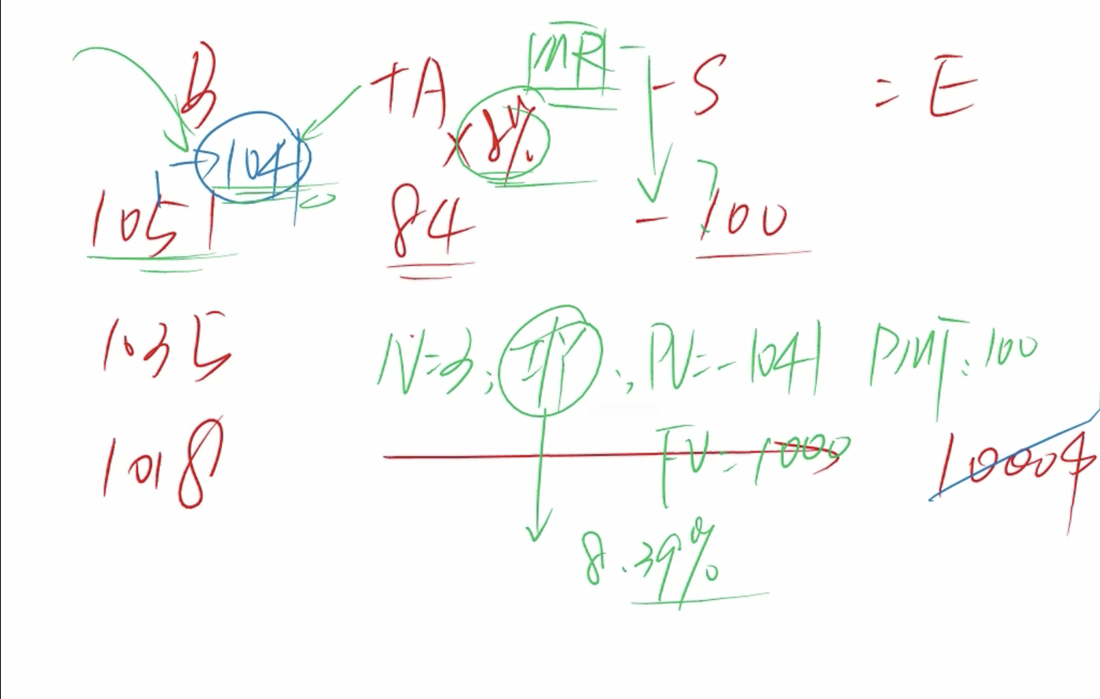 MR
B +A - S = E
→1041 ×8%
1051 84 - 100
1035 N=3; I/Y; PV=-1041 PMT: 100
FV=1000
1018
8.39%